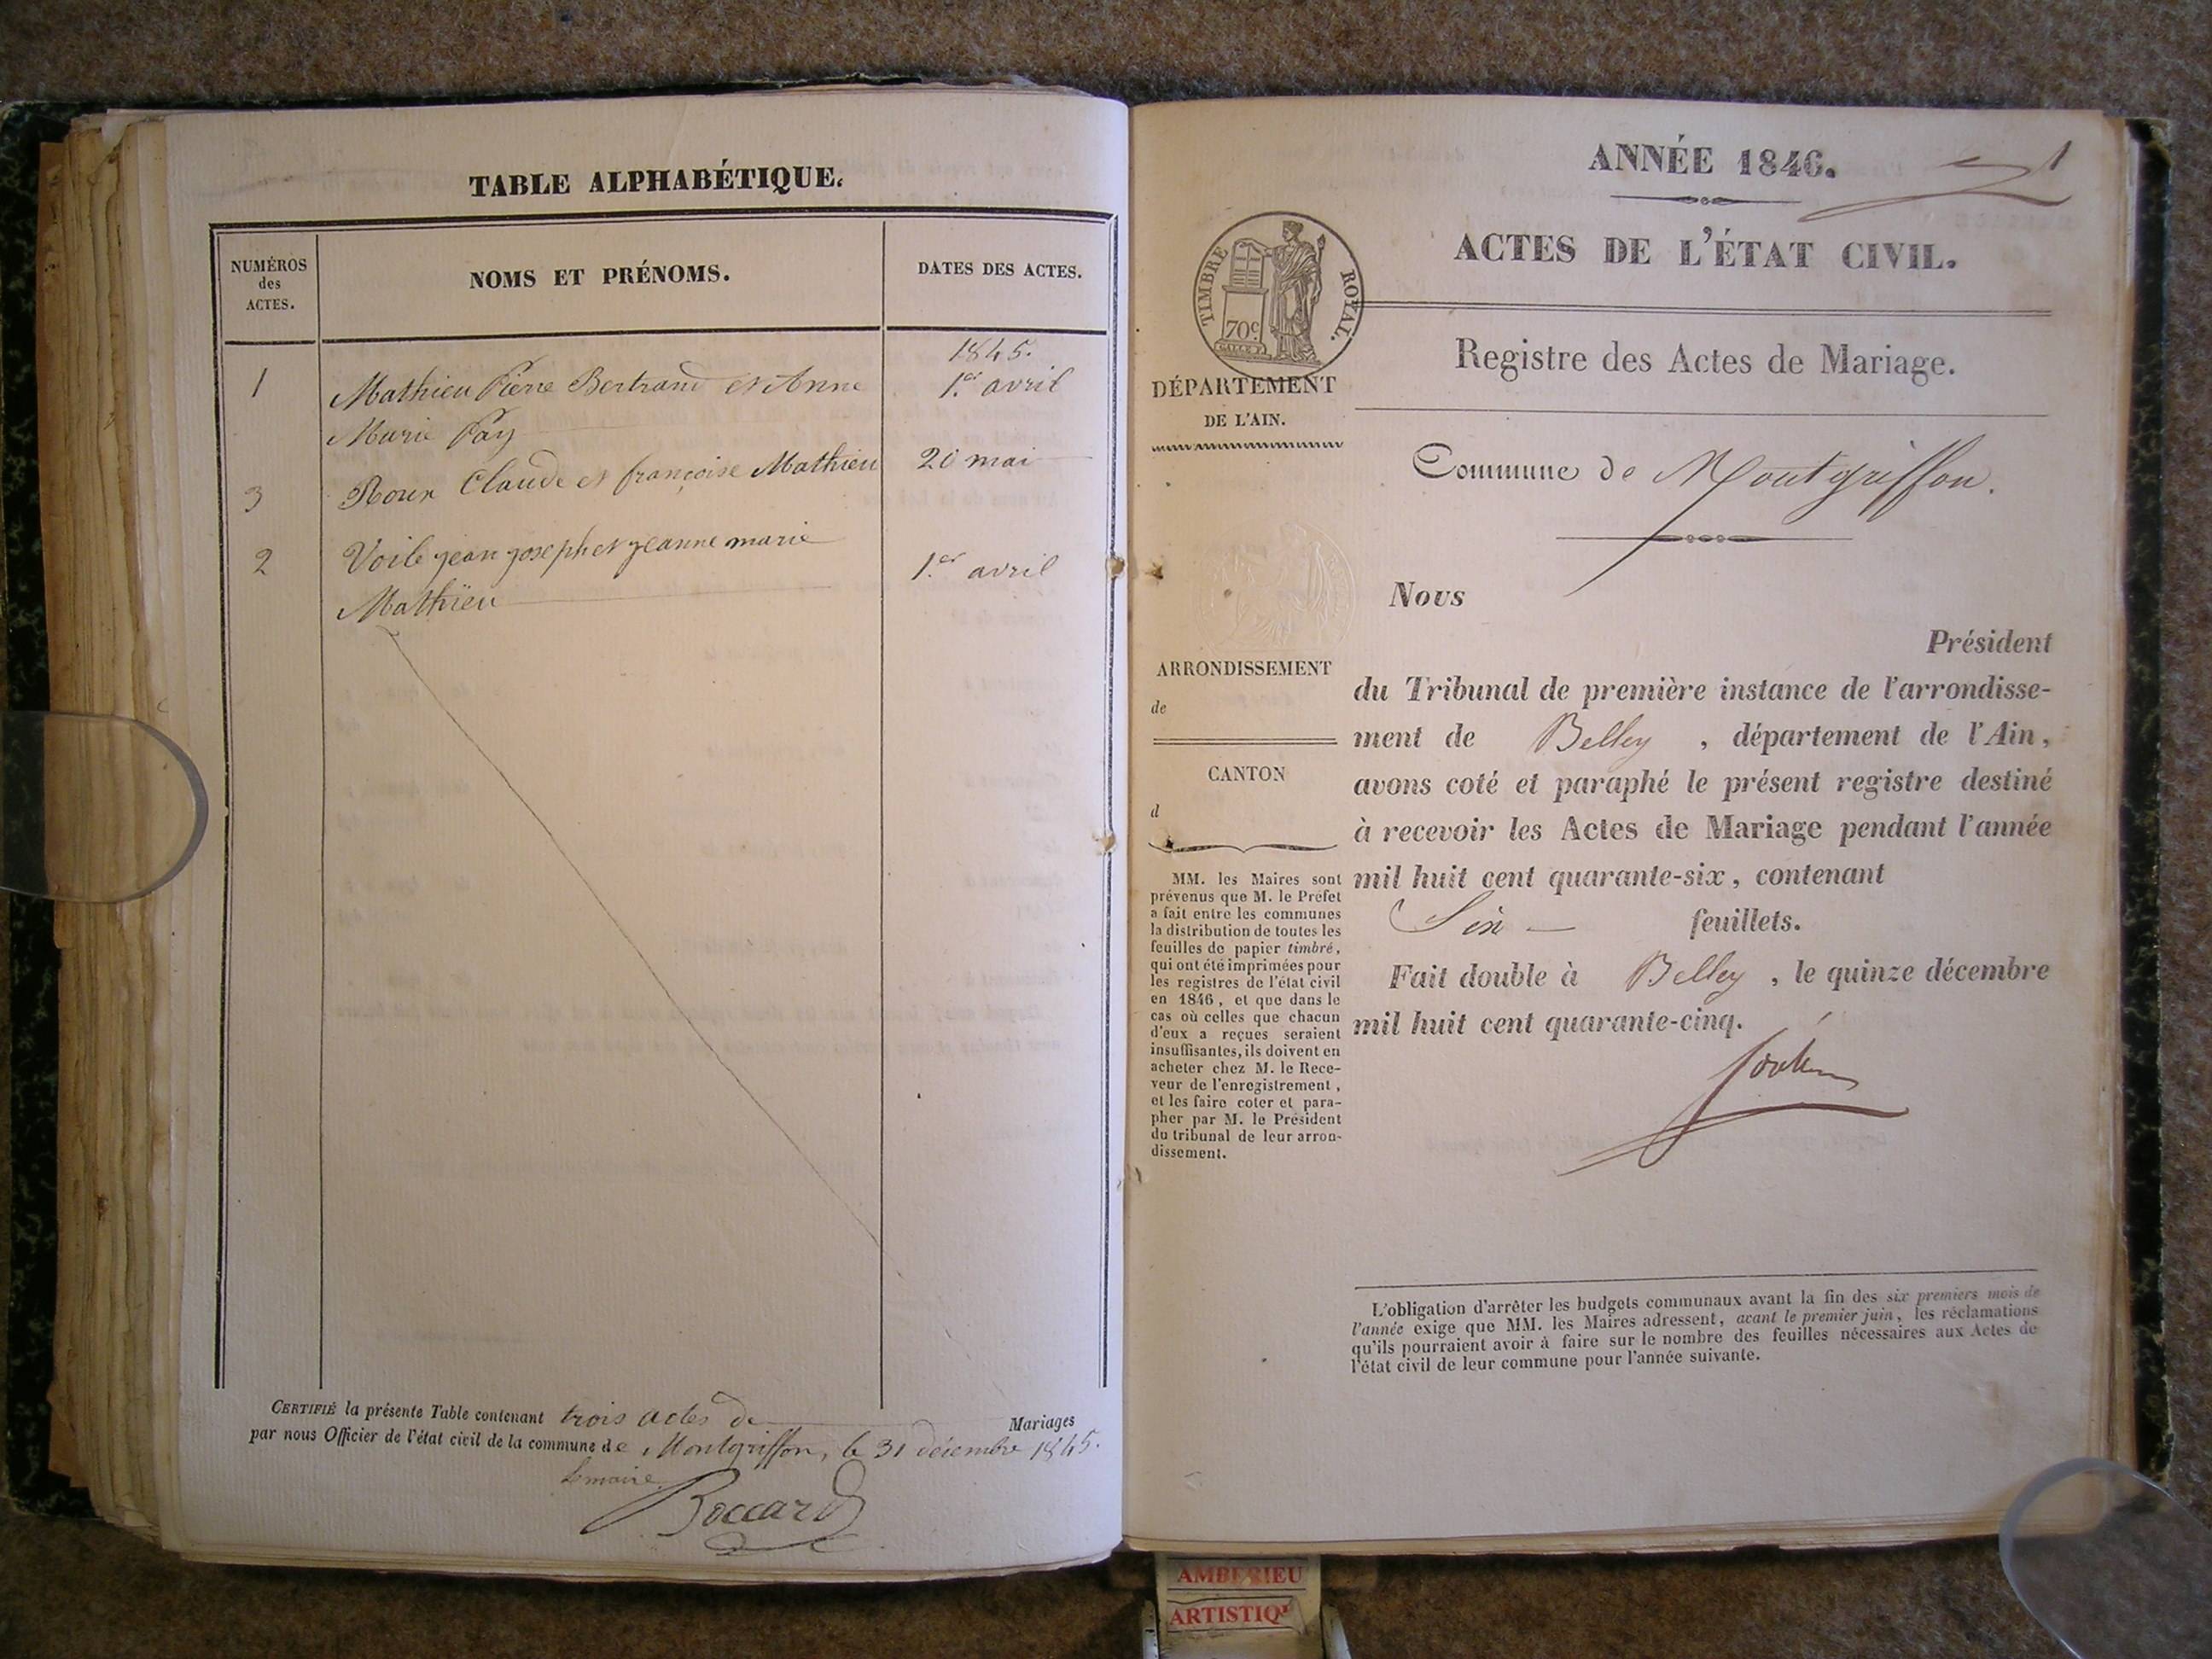 TABLE ALPHABÉTIQUE.
NUMÉROS
des
ACTES.
NOMS ET PRÉNOMS.
DATES DES ACTES.
1845.
1 Mathieu Pierre Bertrand et Anne 1.er avril
Marie Pay
3 Roux Claude et françoise Mathieu 20 mai
2 Voile jean joseph et jeanne marie 1.er avril
Mathieu
CERTIFIÉ la présente Table contenant trois actes de Mariages
par nous Officier de l'état civil de la commune de Montgriffon, le 31 décembre 1845.
le maire
Boccard
ANNÉE 1846.
1
ACTES DE L'ÉTAT CIVIL.
TIMBRE ROYAL.
70c
Registre des Actes de Mariage.
DÉPARTEMENT
DE L'AIN.
Commune de Montgriffon.
Nous
Président
du Tribunal de première instance de l'arrondisse-
ment de Belley , département de l'Ain,
avons coté et paraphé le présent registre destiné
à recevoir les Actes de Mariage pendant l'année
mil huit cent quarante-six, contenant
Six feuillets.
Fait double à Belley , le quinze décembre
mil huit cent quarante-cinq.
ARRONDISSEMENT
de
CANTON
d
MM. les Maires sont
prévenus que M. le Préfet
a fait entre les communes
la distribution de toutes les
feuilles de papier timbré,
qui ont été imprimées pour
les registres de l'état civil
en 1846, et que dans le
cas où celles que chacun
d'eux a reçues seraient
insuffisantes, ils doivent en
acheter chez M. le Rece-
veur de l'enregistrement,
et les faire coter et para-
pher par M. le Président
du tribunal de leur arron-
dissement.
L'obligation d'arrêter les budgets communaux avant la fin des six premiers mois de
l'année exige que MM. les Maires adressent, avant le premier juin, les réclamations
qu'ils pourraient avoir à faire sur le nombre des feuilles nécessaires aux Actes de
l'état civil de leur commune pour l'année suivante.
AMBERIEU
ARTISTIQ